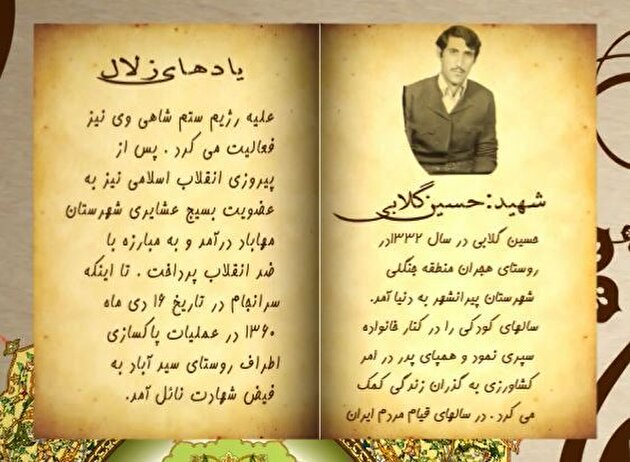 شهید: حسین گلابی
حسین گلابی در سال ۱۳۳۲در
روستای هجران منطقه جنگلی
شهرستان پیرانشهر به دنیا آمد.
سالهای کودکی را در کنار خانواده
سپری نمود و همپای پدر در امر
کشاورزی به گذران زندگی کمک
می کرد. در سالهای قیام مردم ایران
یادهای زلال
علیه رژیم ستم شاهی وی نیز
فعالیت می کرد. پس از
پیروزی انقلاب اسلامی نیز به
عضویت بسیج عشایری شهرستان
مهاباد درآمد و به مبارزه با
ضد انقلاب پرداخت. تا اینکه
سرانجام در تاریخ ۱۶ دی ماه
۱۳۶۰ در عملیات پاکسازی
اطراف روستای سید آباد به
فیض شهادت نائل آمد.